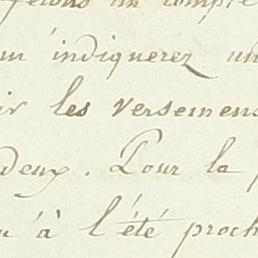 ferons un compte
m'indiquerez un
ir les versemens
deux. Pour la p
u'à l'été proch